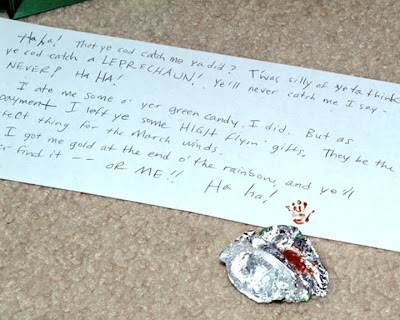 Ha ha! Thot ye cod catch me ya did? Twas silly of ye ta think
ye cod catch a LEPRECHAUN! Ye'll never catch me I say -
NEVER! HA HA!
I ate me some o' yer green candy I did. But as
payment I left ye some HIGH flyin' gifts. They be the
fect thing for the March winds.
I got me gold at the end o' the rainbow, and ye'll
er find it --
OR ME!! Ha ha!